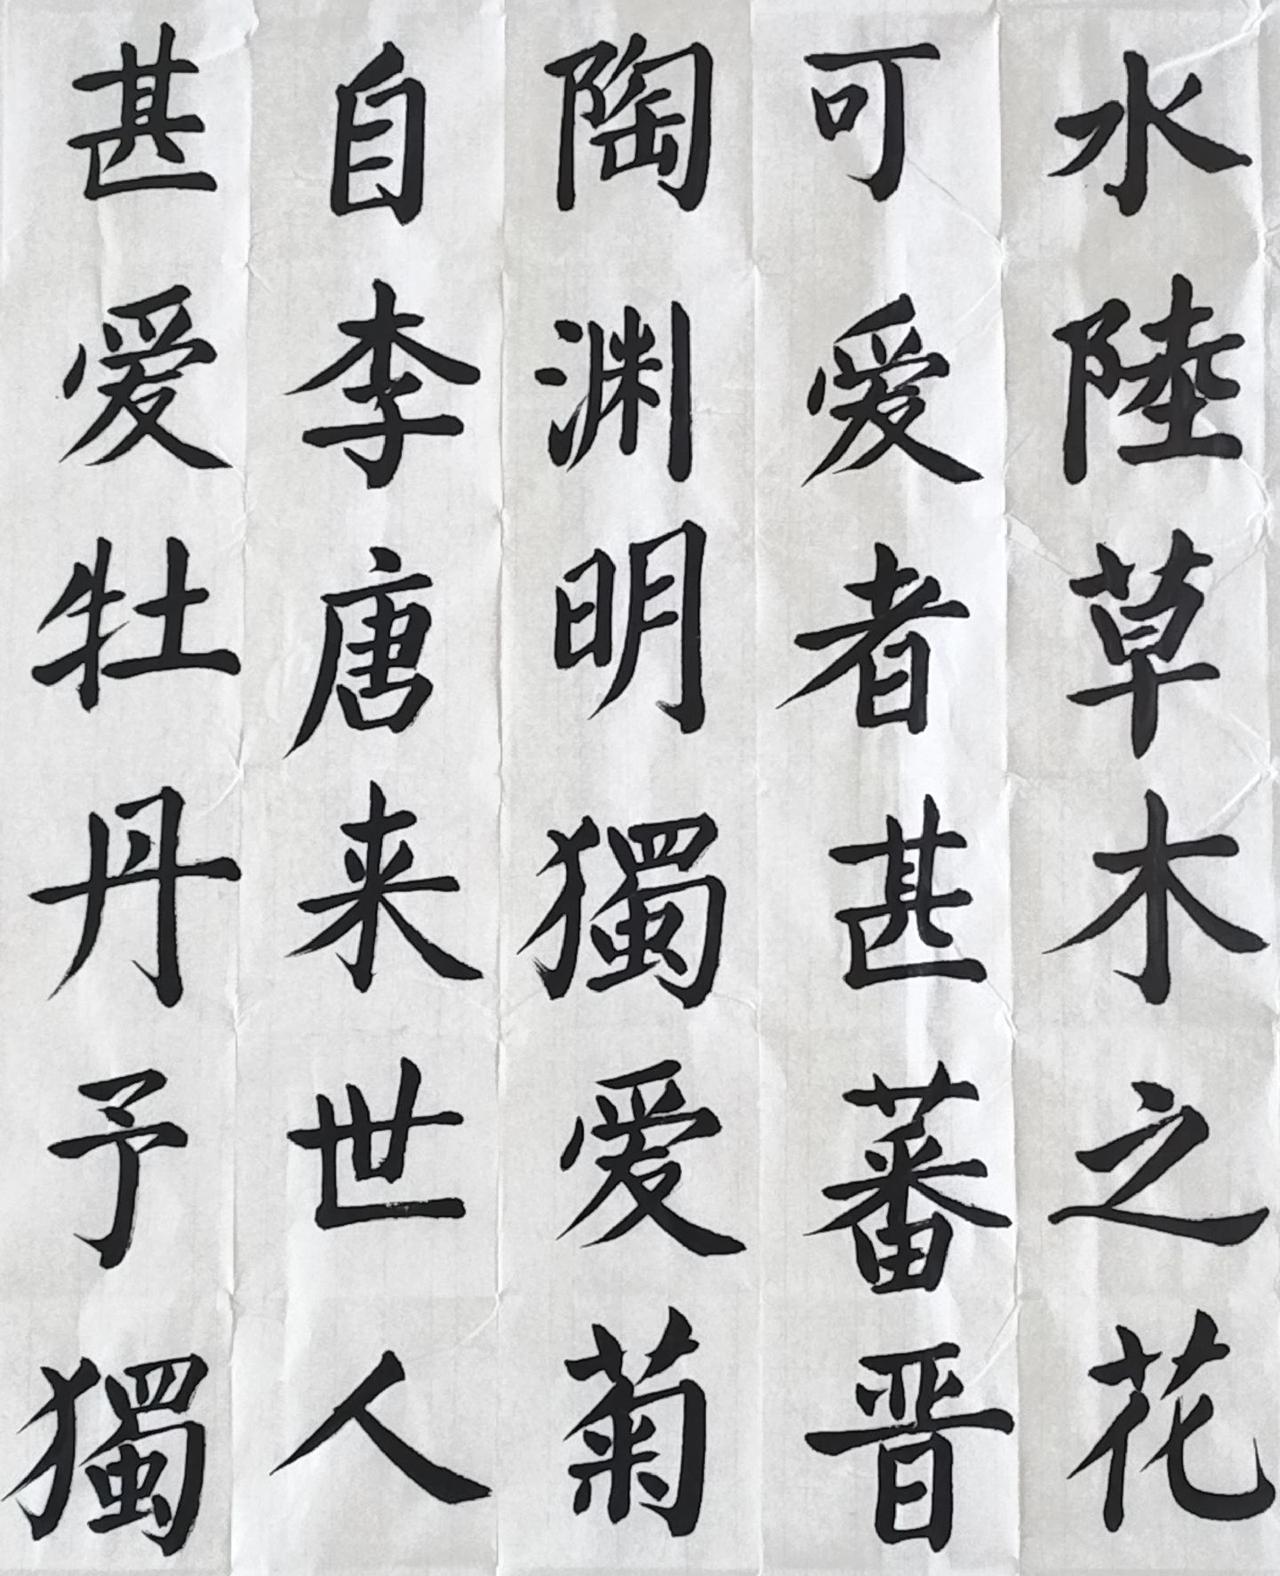 水陸草木之花
可爱者甚蕃晋
陶渊明獨爱菊
自李唐来世人
甚爱牡丹予獨